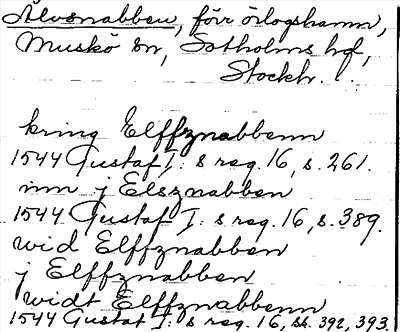 Älvsnabben, förr örlogshamn,
Muskö sn, Sotholms hd,
Stockh.
kring Elffznabbenn
1544 Gustaf I: s reg. 16, s. 261.
inn j Elsznabben
1544 Gustaf I: s reg. 16, s. 389.
wid Elffznabben
j Elffznabben
widt Elffznabbenn
1544 Gustaf I: s reg. 16, ss. 392, 393.